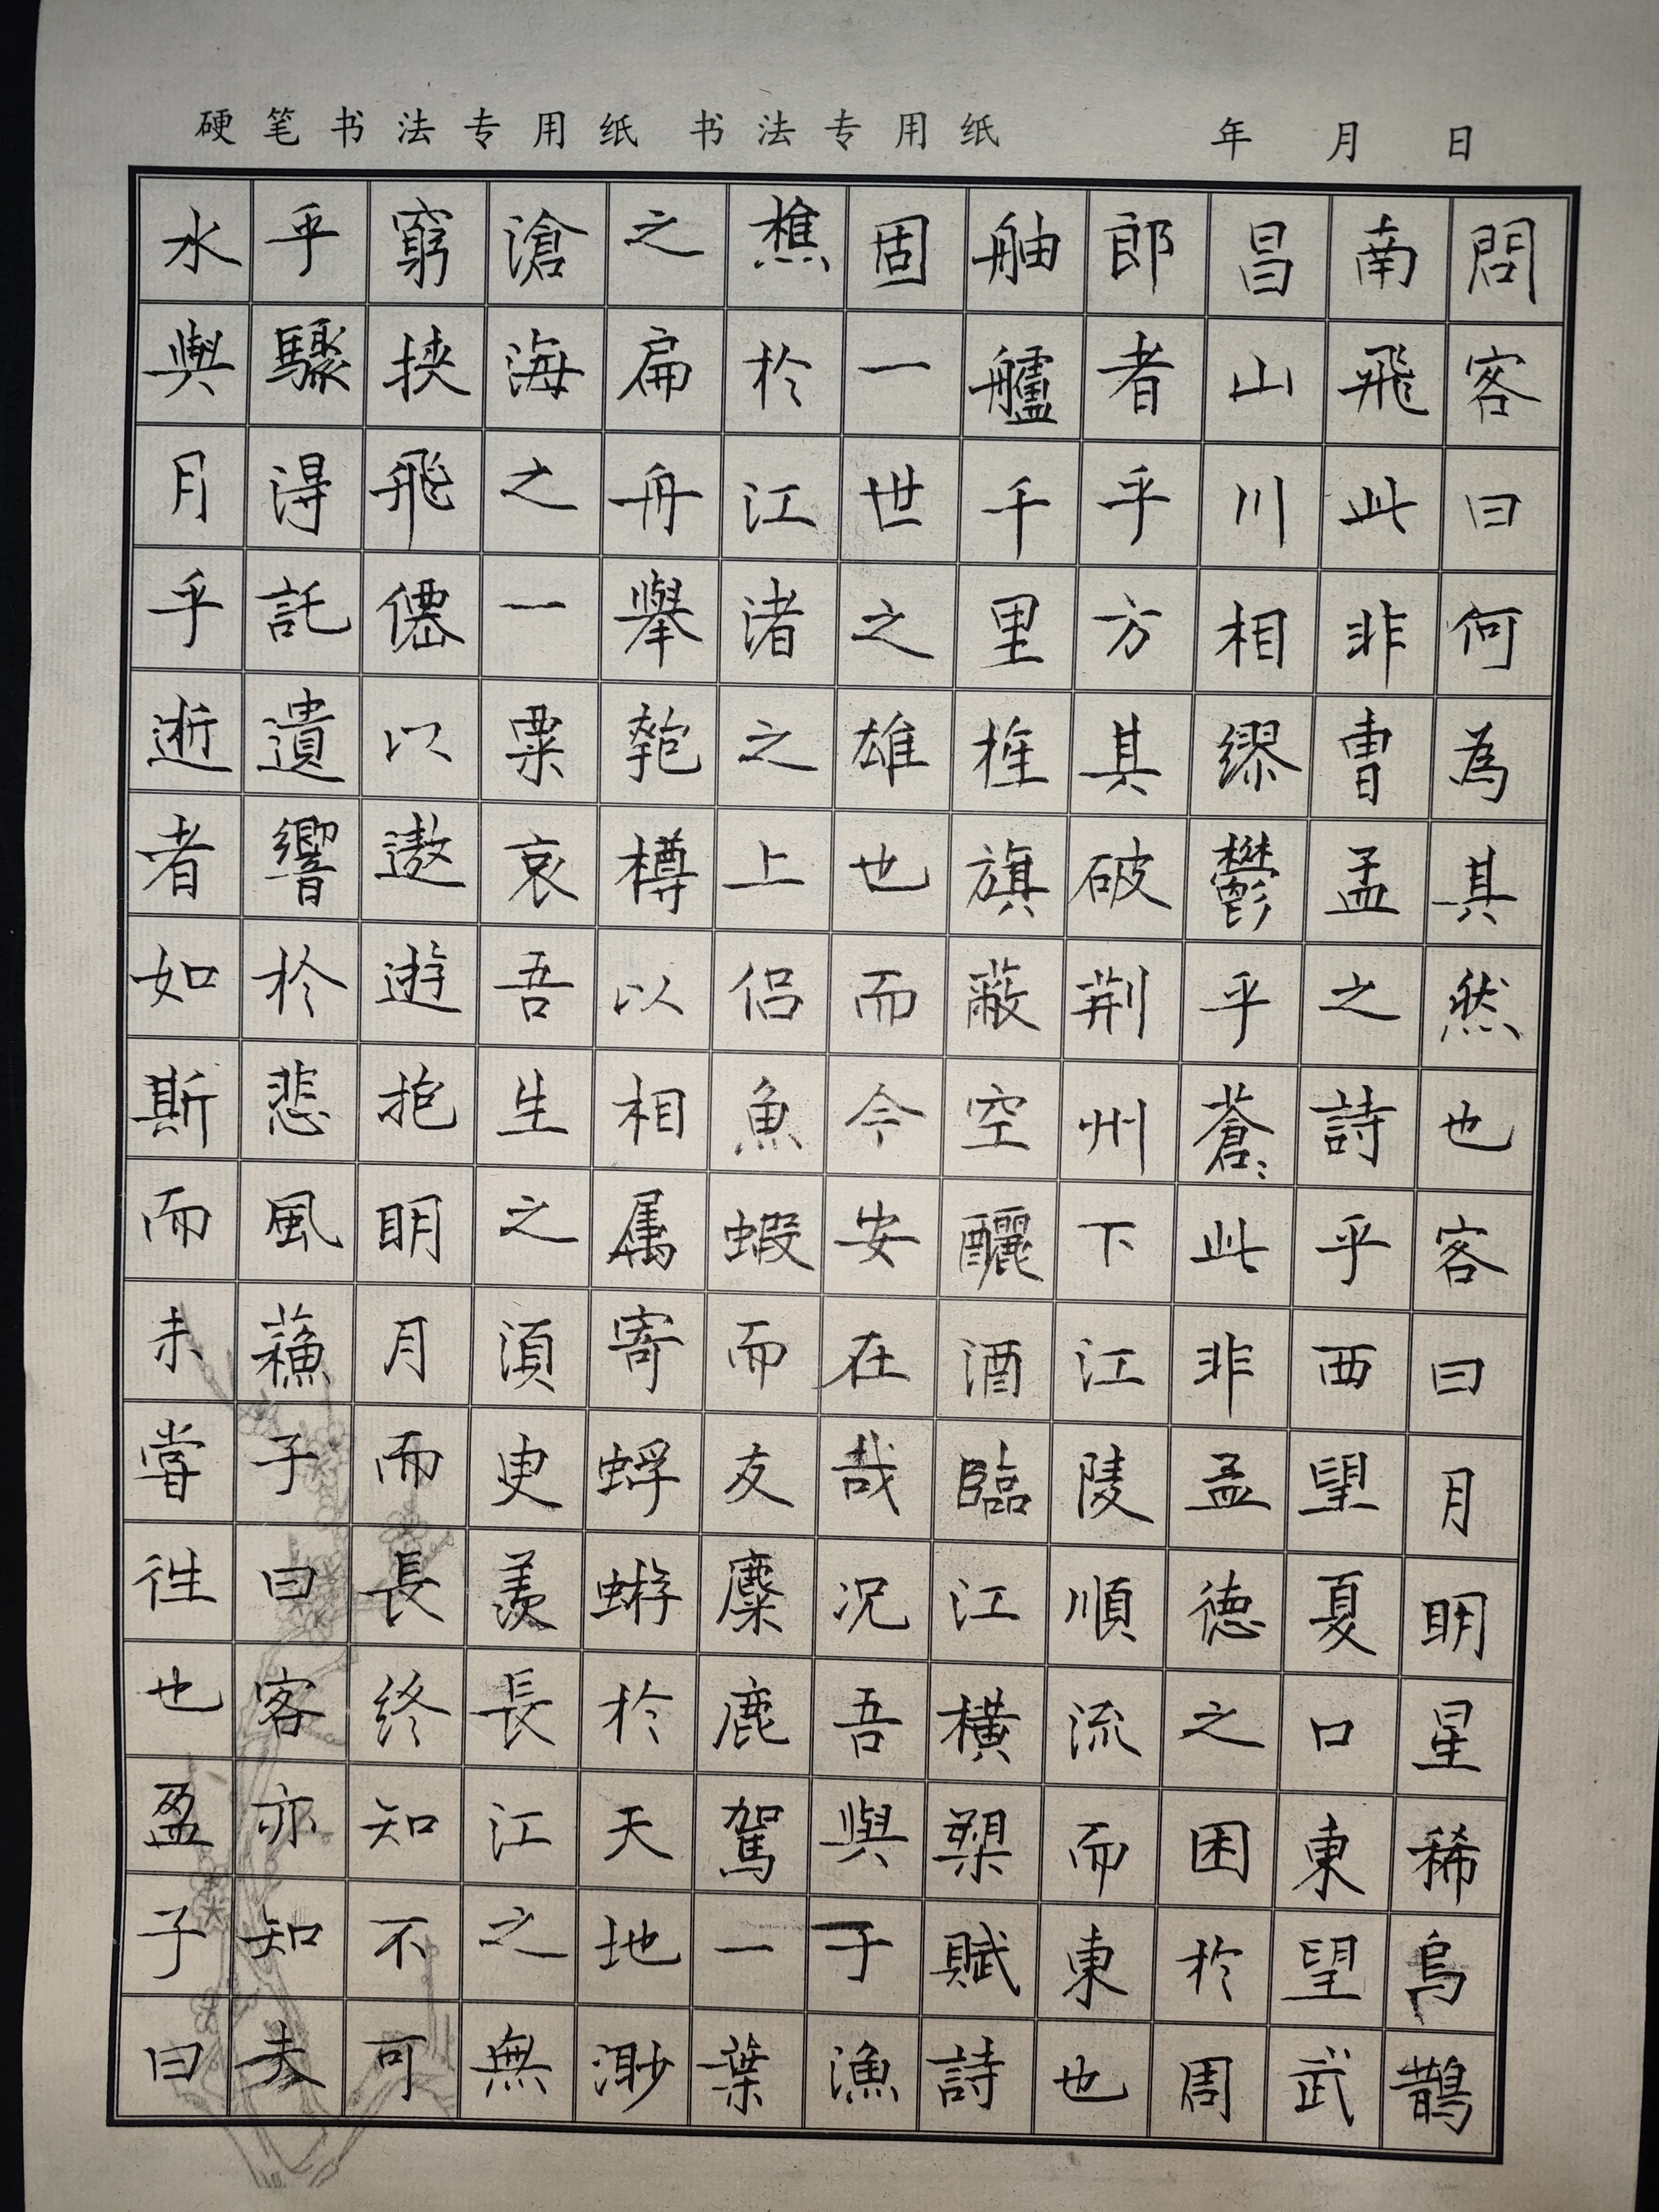 硬笔书法专用纸 书法专用纸 年 月 日
問客曰何為其然也客曰月明星稀烏鵲
南飛此非曹孟之詩乎西望夏口東望武
昌山川相繆鬱乎蒼〻此非孟德之困於周
郎者乎方其破荆州下江陵順流而東也
舳艫千里旌旗蔽空釃酒臨江橫槊賦詩
固一世之雄也而今安在哉况吾與子漁
樵於江渚之上侣魚蝦而友麋鹿駕一葉
之扁舟舉匏樽以相属寄蜉蝣於天地渺
滄海之一粟哀吾生之須臾羨長江之無
窮挾飛僊以遨遊抱明月而長終知不可
乎驟得託遺響於悲風蘇子曰客亦知夫
水與月乎逝者如斯而未嘗往也盈子曰